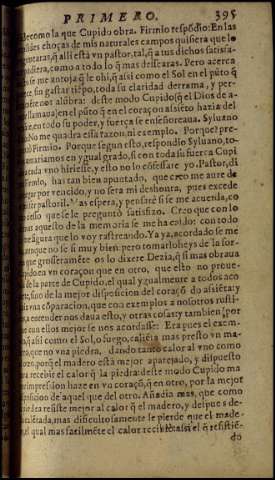 PRIMERO. 395
como la que Cupido obra. Firmio respõdio: En las
choças de mis naturales campos quisiera que lo
q̃ allí está vn pastor, tal, q̃ a tus dichos satisfa-
como a todo lo q̃ mas desearas. Pero acerca
me antoja q̃ le ohi, q̃ así como el Sol en el pũto q̃
sin gastar tiẽpo, toda su claridad derrama, y per-
nos alũbra: deste modo Cupido (q̃ el Dios de a-
llamauã) en el pũto q̃ en el coraçon asiẽto hazia del
en todo su poder, y fuerça se enseñoreaua. Syluano
No me quadra essa razon, ni exemplo. Porque? pre-
Firmio. Porque segun esto, respondio Syluano, to-
amariamos en ygual grado, si con toda su fuerça Cupi
vno hiriesse, y esto no lo cõfessare yo. Pastor, di
Firmio, has tan bien apuntado, que creo me aure de
por vencido, y no sera mi deshonra, pues excede
pastoril. Mas espera, y pensaré si se me acuerda, co
que se le preguntò satisfizo. Creo que con lo
aquello de la memoria se me ha caido: con todo
aguarda que lo voy rastreando. Ya ya, acordado se me
aunque no le si muy bien: pero tomarloheys de la for-
que groseramẽte os lo dixere. Dezia, q̃ si mas obraua
en vn coraçon que en otro, que esto no preue-
de la parte de Cupido, el qual ygualmente a todos aco
sino de la mejor disposicion del coraçõ do asiẽta: y
vna cõparacion, que con exemplos a nosotros rusti-
entender nos daua esto, y otras cosas: y tambien por
con ellos mejor se nos acordasse. Era pues el exem-
q̃ assi como el Sol, o fuego, caliẽta mas presto vn ma-
que no vna piedra, dando tanto calor al vno como
porq̃ el madero està mejor aparejado, y dispuesto
recebir el calor q̃ la piedra: deste modo Cupido ma
impression haze en vn coraçõ, q̃ en otro, por la mejor
de aquel que del otro. Añadia mas, que como
resiste mejor al calor q̃ el madero, y despues de
mas dificultosamente le pierde que el made-
el qual mas facilmẽte el calor recibe: assi el q̃ resistiẽ-
do